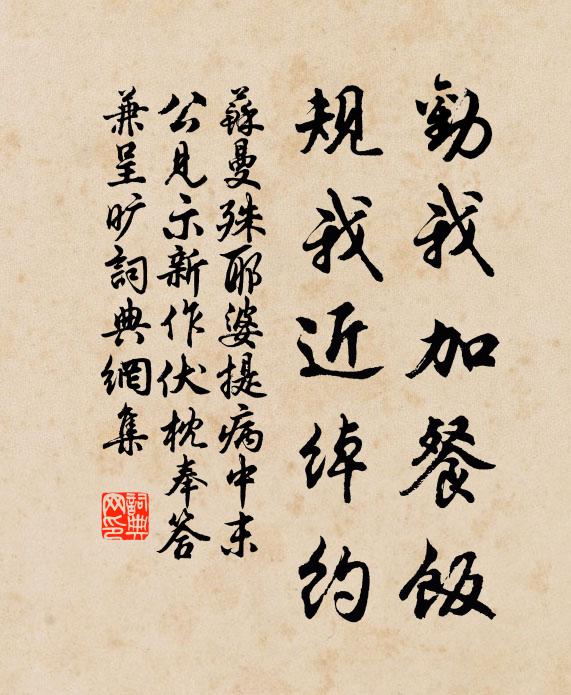 勸我加餐飯
規我近綽約
蘇曼殊耶婆提病中末
公見示新作伏枕奉答
兼呈旷詞典網集
詞典
网印